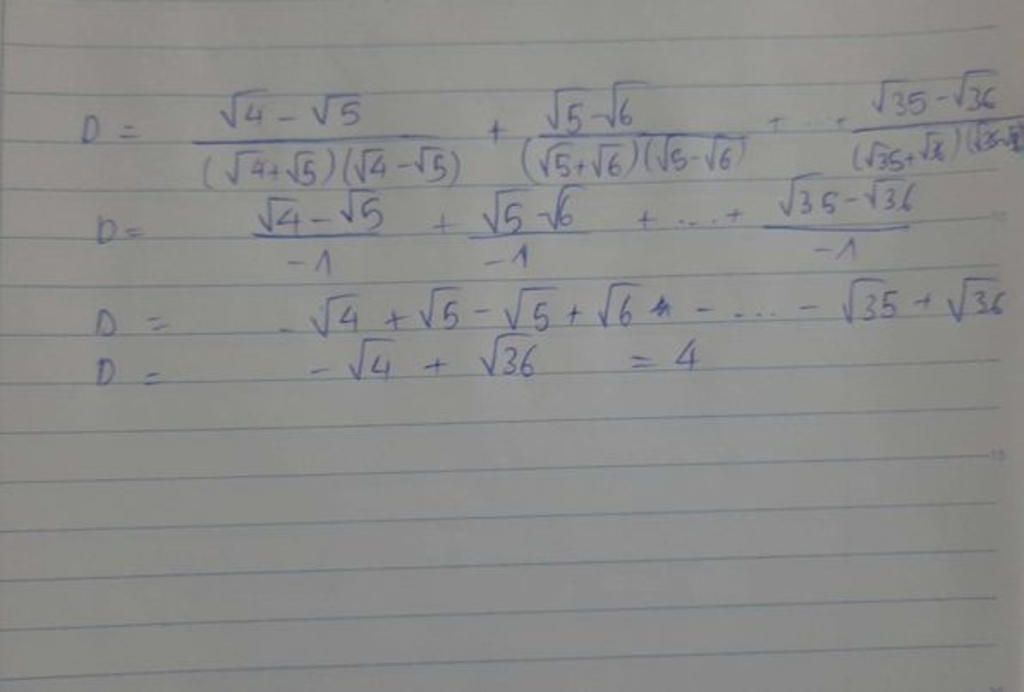 D = (√4 - √5)/((√4+√5)(√4-√5)) + (√5-√6)/((√5+√6)(√5-√6)) + ... + (√35-√36)/((√35+√36)(√35-√36))
D = (√4-√5)/(-1) + (√5-√6)/(-1) + ....+ (√35-√36)/(-1)
D = -√4 +√5 -√5 + √6 - .... - √35 + √36
D = -√4 + √36 = 4